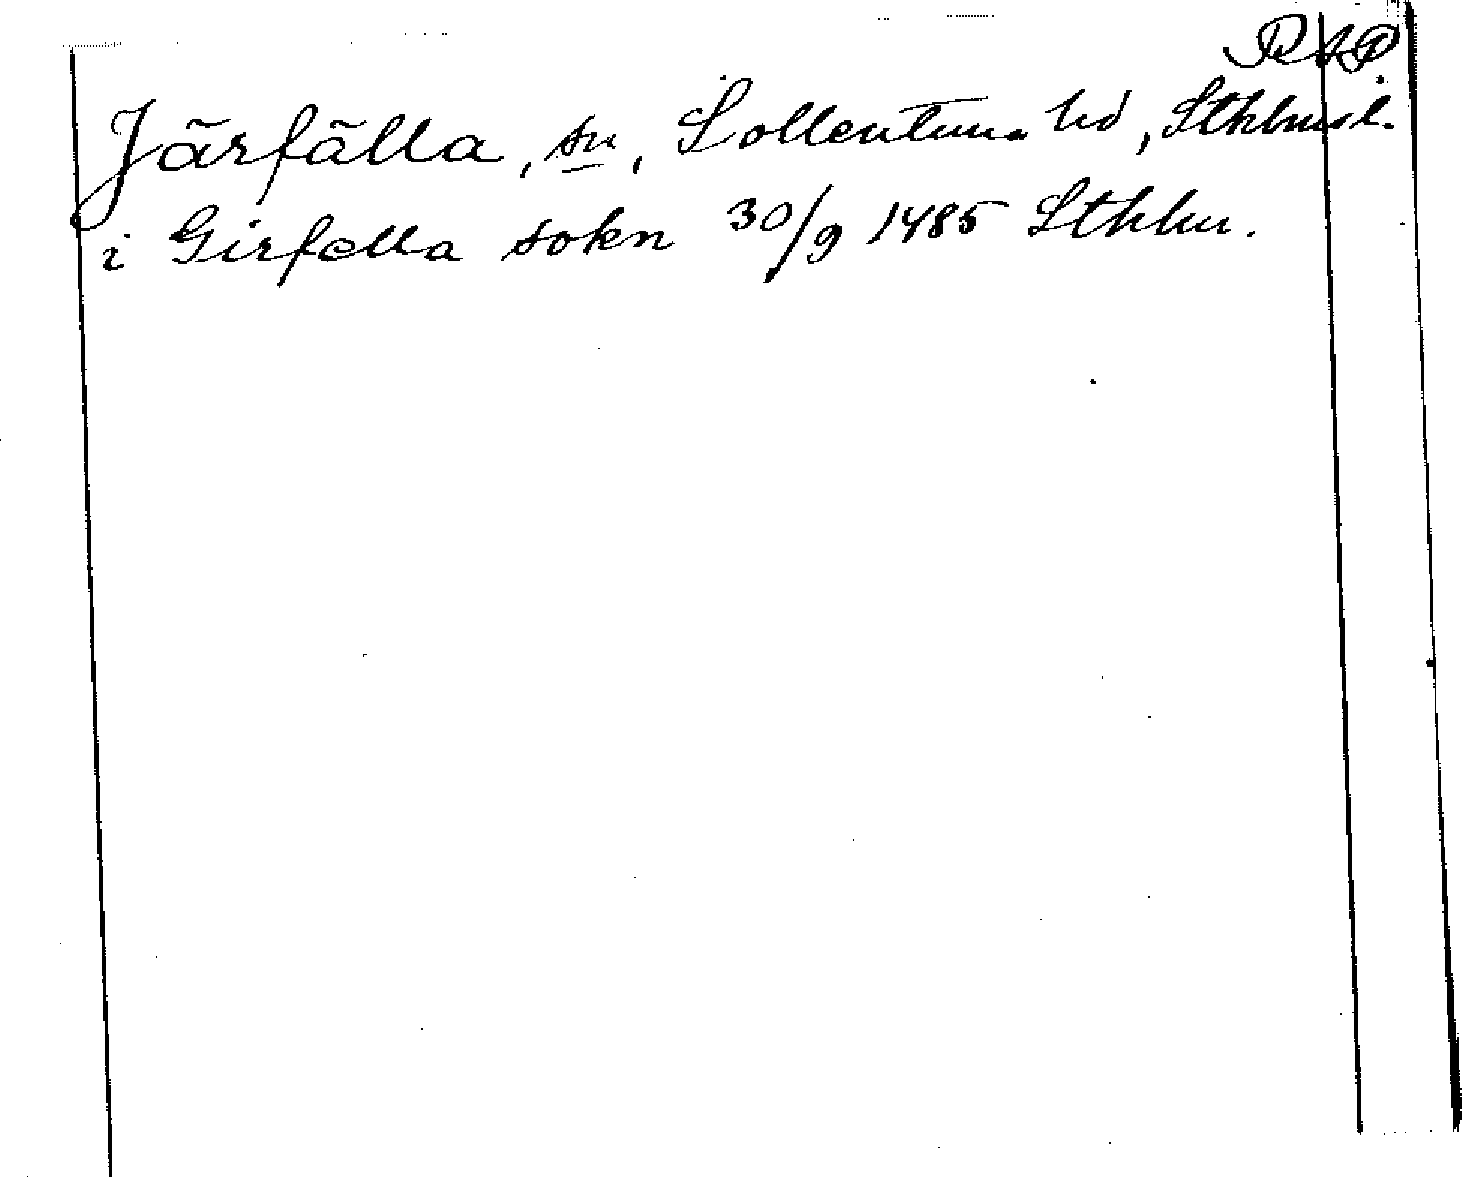 RAP
Järfälla, sn, Sollentuna hd, Sthlms l.
i Girfella sokn 30/9 1485 Sthlm.